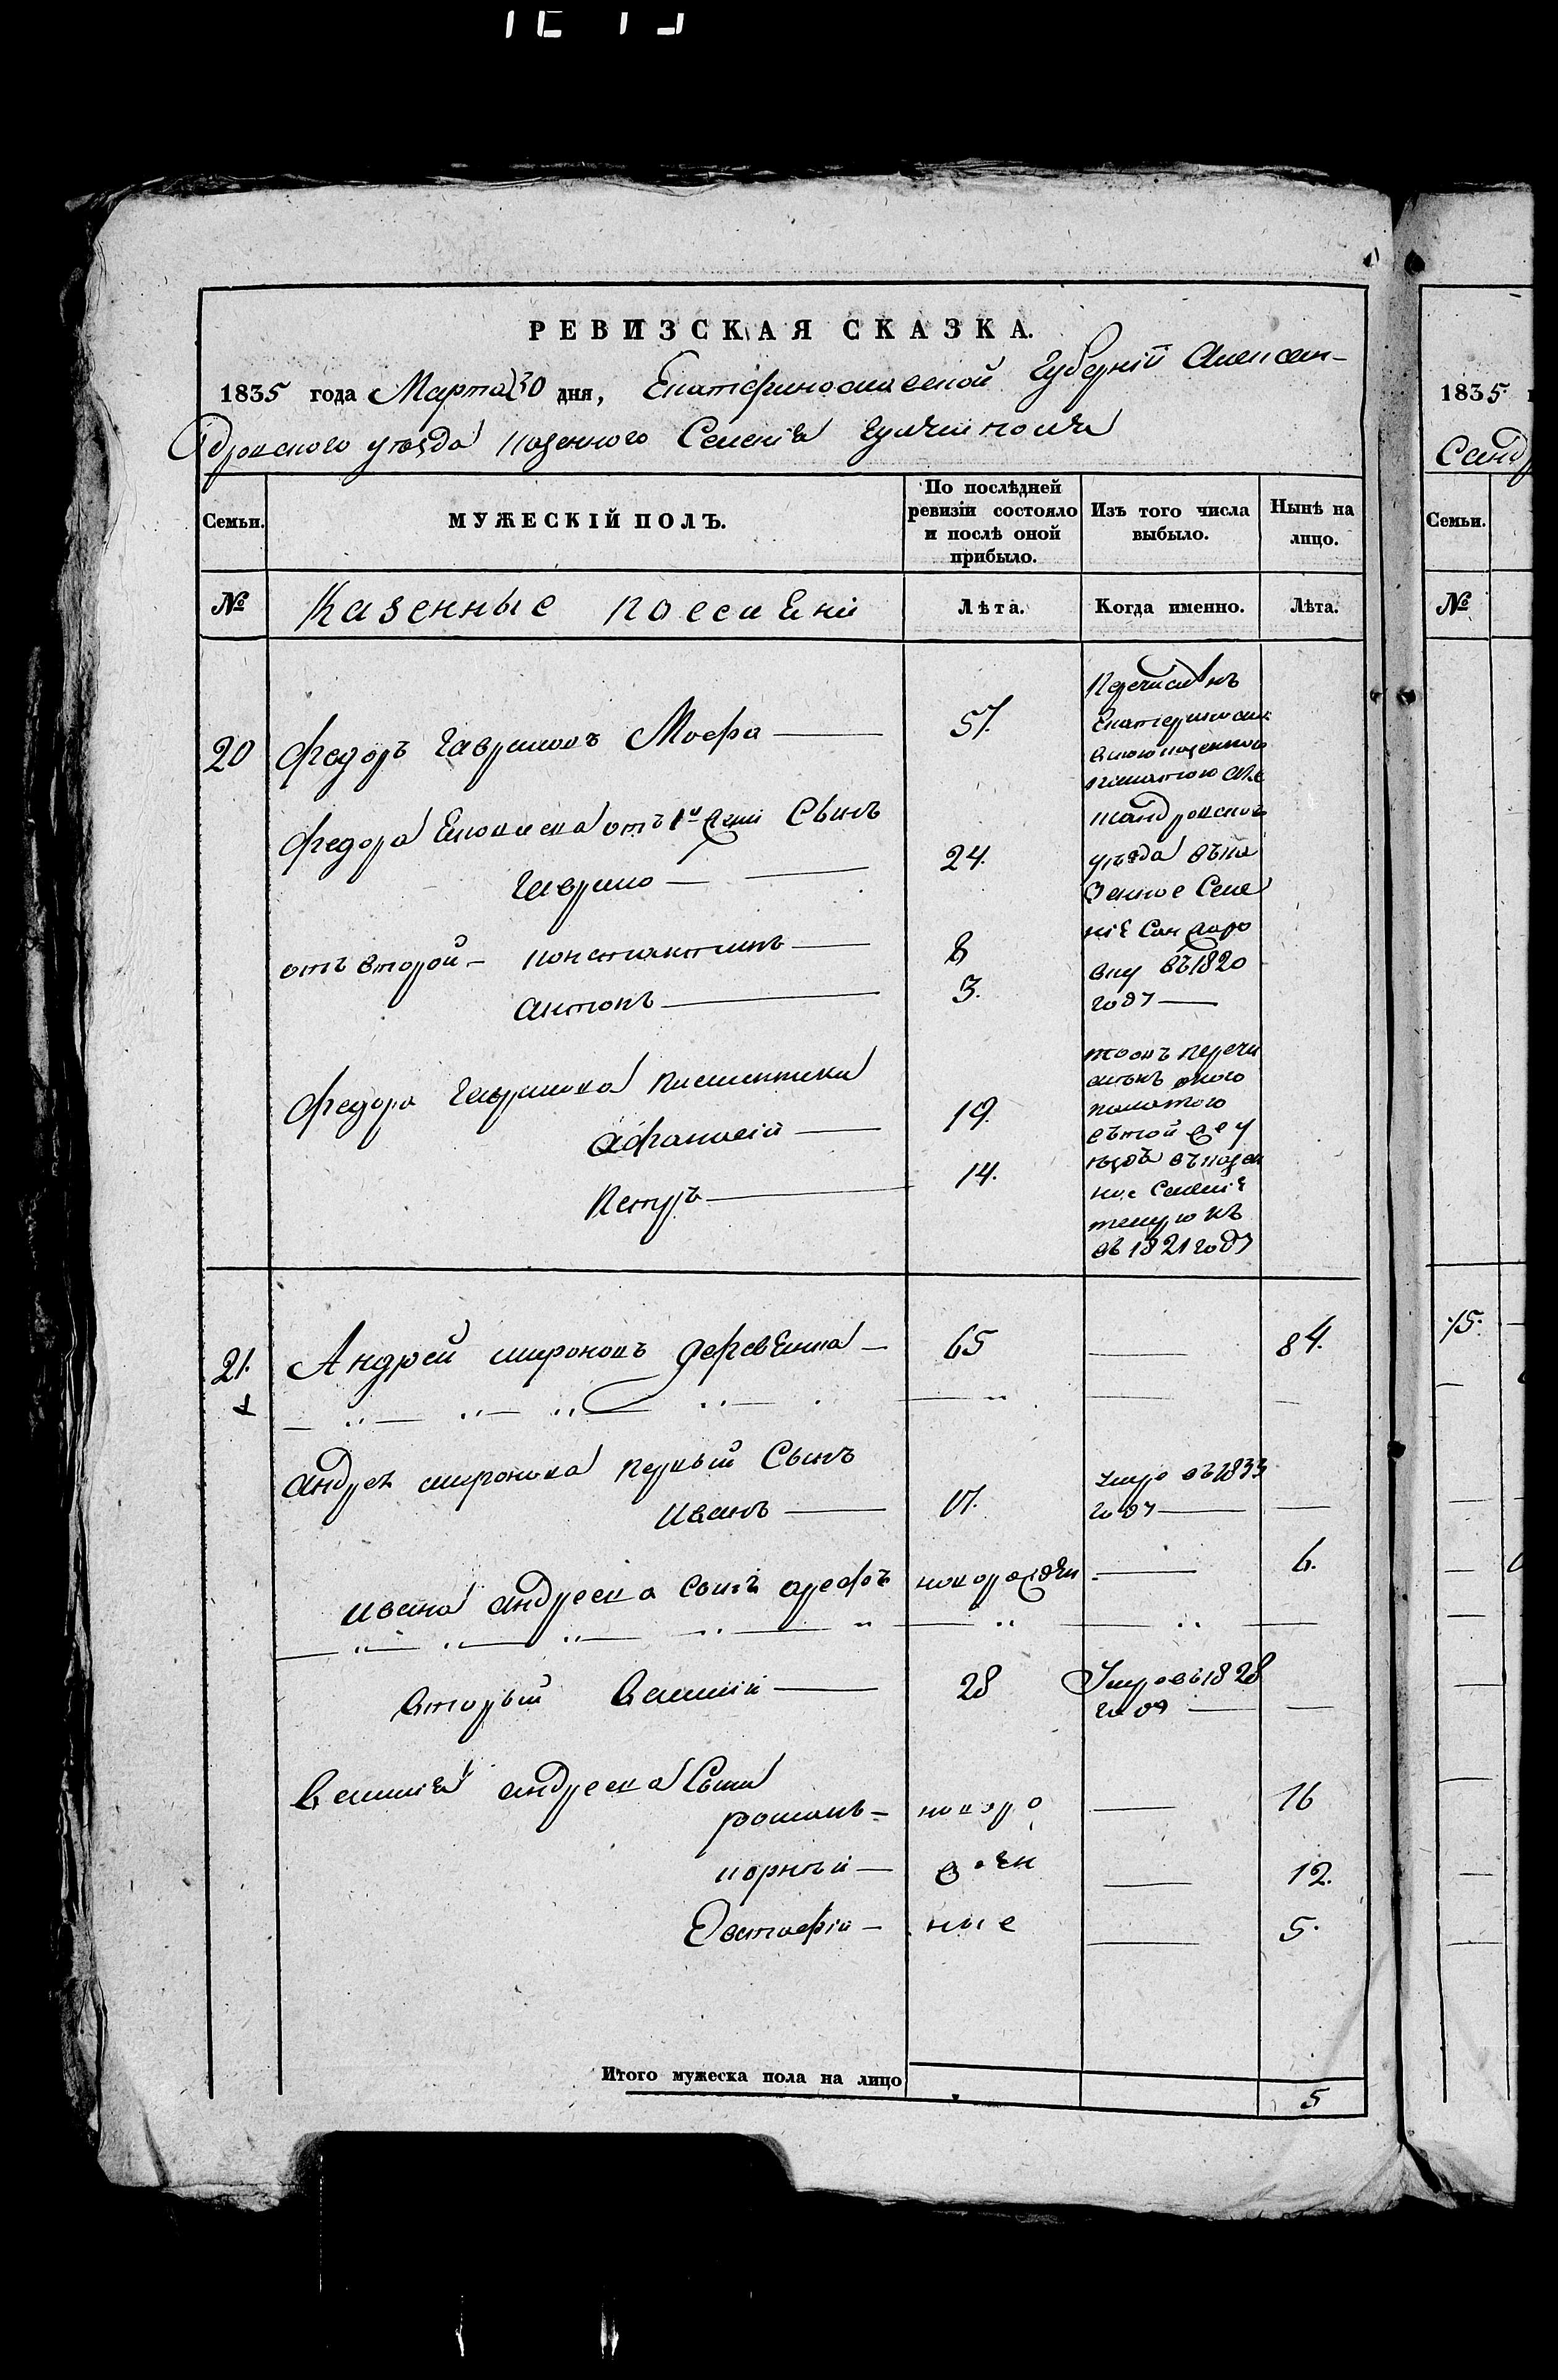 РЕВИЗСКАЯ СКАЗКА.
1835 года Марта 30 дня, Екатеринославской Губерніи Алексан-
дровского уезда казенного Селенія
Семьи.
МУЖЕСКІЙ ПОЛЪ.
По послѣдней ревизіи состояло и послѣ оной прибыло.
Изъ того числа выбыло.
Нынѣ на лицо.
№
Казенные поселяни
Лѣта.
Когда именно.
Лѣта.
20 Федоръ Гавриловъ Моера 57.
Перечисленъ
Екатеринославс
кою казенною
палатою Алек
сандровского
уѣзда въка
зенное Селе
ніе
въ 1820
году
Федора от 1й жени Сынъ
Гаврило 24.
отъ второй Константинъ 8
антонъ 3.
Федора Гаврилова племянники
Афанасій 19.
Петръ 14.
тоже перечи
сленъ оною
палатою
въ казен
ное Селеніе
въ 1821 году
21. Андрей мироновъ деревянка 65 84.
андрея миронова первый Сынъ
Иванъ 17. умре въ 1833
году
Ивана андреева Сынъ арефъ новорожден. 6.
вторый Василій 28 Умре въ 1828
году
Василія андреева Сыни
романъ новоро 16
корній жден 12.
Евстафій ные 5.
Итого мужеска пола на лицо 5
1835
Санд
Семьи.
№
15.